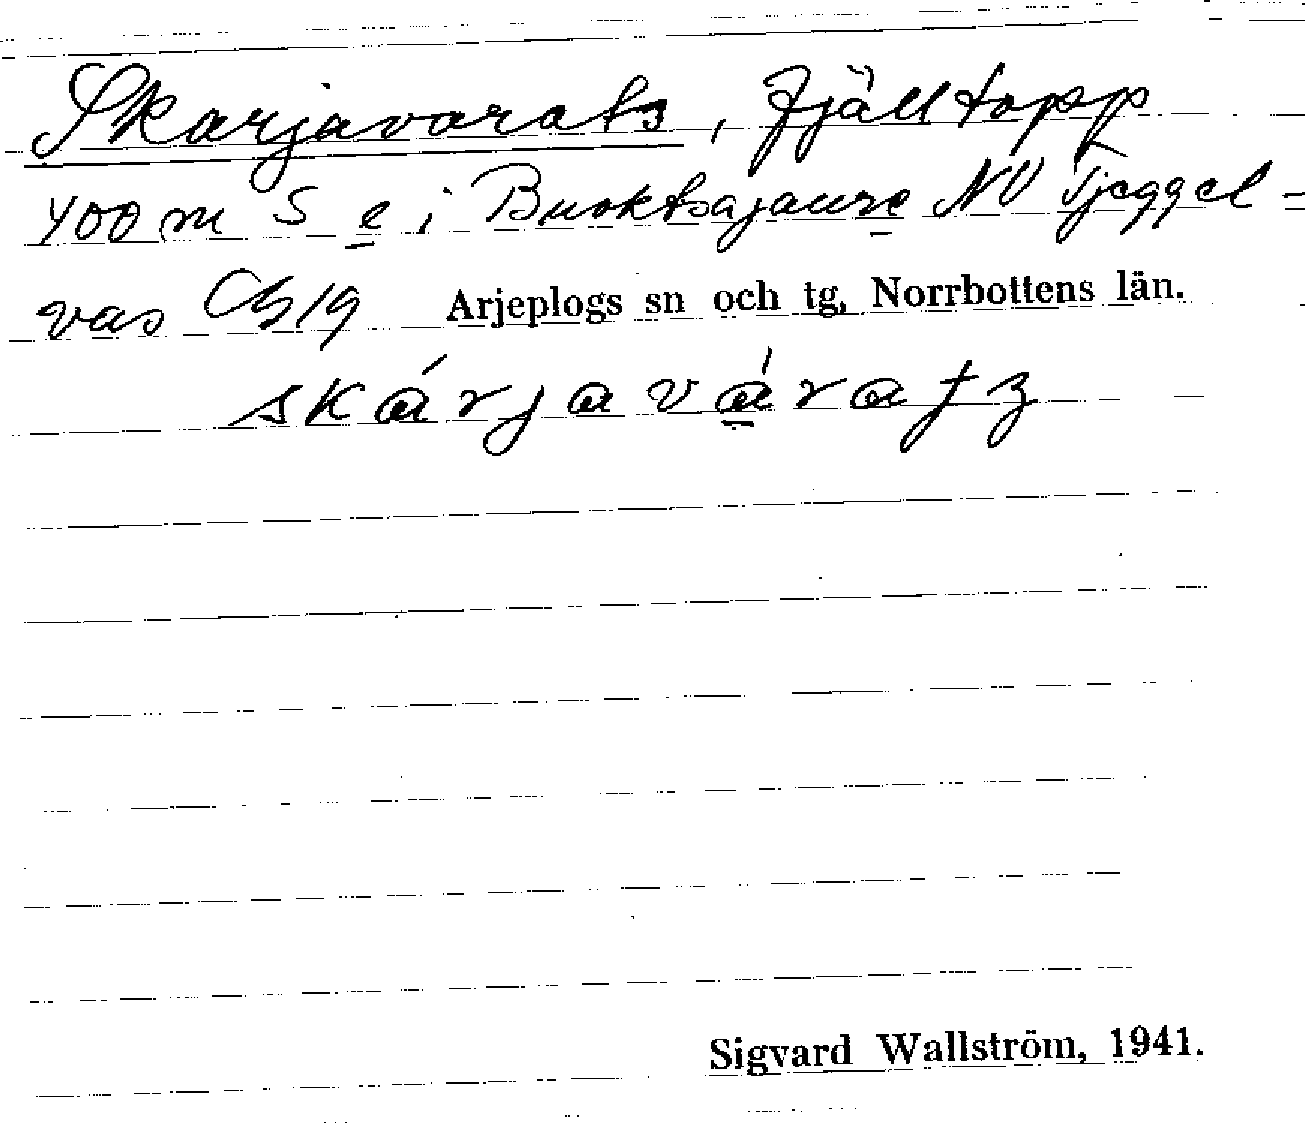 Skarjavarats, fjälltopp
400 m S e i Buoktsajaure NV Tjeggel-
vas Arjeplogs sn och tg, Norrbottens län.
skárjavárats
Sigvard Wallström, 1941.